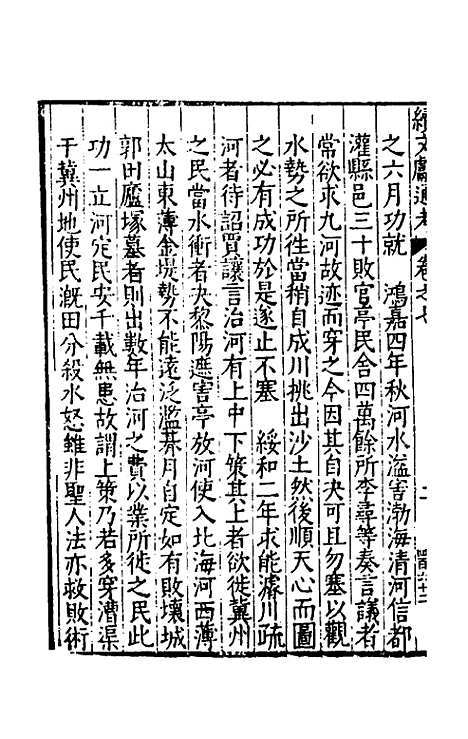 續文獻通考 卷之七
之六月功就 鴻嘉四年秋河水溢害渤海清河信都
灌縣邑三十敗官亭民舍四萬餘所李尋等奏言議者
常欲求九河故迹而穿之今因其自決可且勿塞以觀
水勢之所往當稍自成川挑出沙土然後順天心而圖
之必有成功於是遂止不塞 綏和二年求能濬川疏
河者待詔賈讓言治河有上中下策其上者欲徙冀州
之民當水衝者決黎陽遮害亭放河使入北海河西薄
太山東薄金堤勢不能遠泛濫朞月自定如有敗壞城
郭田廬塚墓者則出數年治河之費以業所徙之民此
功一立河定民安千載無患故謂上策乃若多穿漕渠
于冀州地使民溉田分殺水怒雖非聖人法亦救敗術